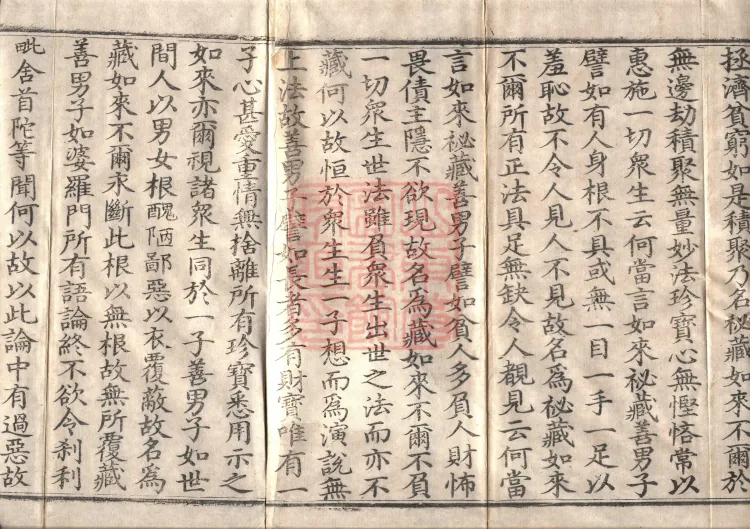 拯濟貧窮如是積聚乃名祕藏如來不爾於
無邊劫積聚無量妙法珍寶心無慳悋常以
惠施一切衆生云何當言如來祕藏善男子
譬如有人身根不具或無一目一手一足以
羞恥故不令人見人不見故名爲祕藏如來
不爾所有正法具足無缺令人覩見云何當
言如來祕藏善男子譬如貧人多負人財怖
畏債主隱不欲現故名爲藏如來不爾不負
一切衆生世法雖負衆生出世之法而亦不
藏何以故恒於衆生生一子想而爲演說無
上法故善男子譬如長者多有財寶唯有一
子心甚愛重情無捨離所有珍寶悉用示之
如來亦爾視諸衆生同於一子善男子如世
間人以男女根醜陋鄙惡以衣覆蔽故名爲
藏如來不爾永斷此根以無根故無所覆藏
善男子如婆羅門所有語論終不欲令刹利
毗舍首陀等聞何以故以此論中有過惡故